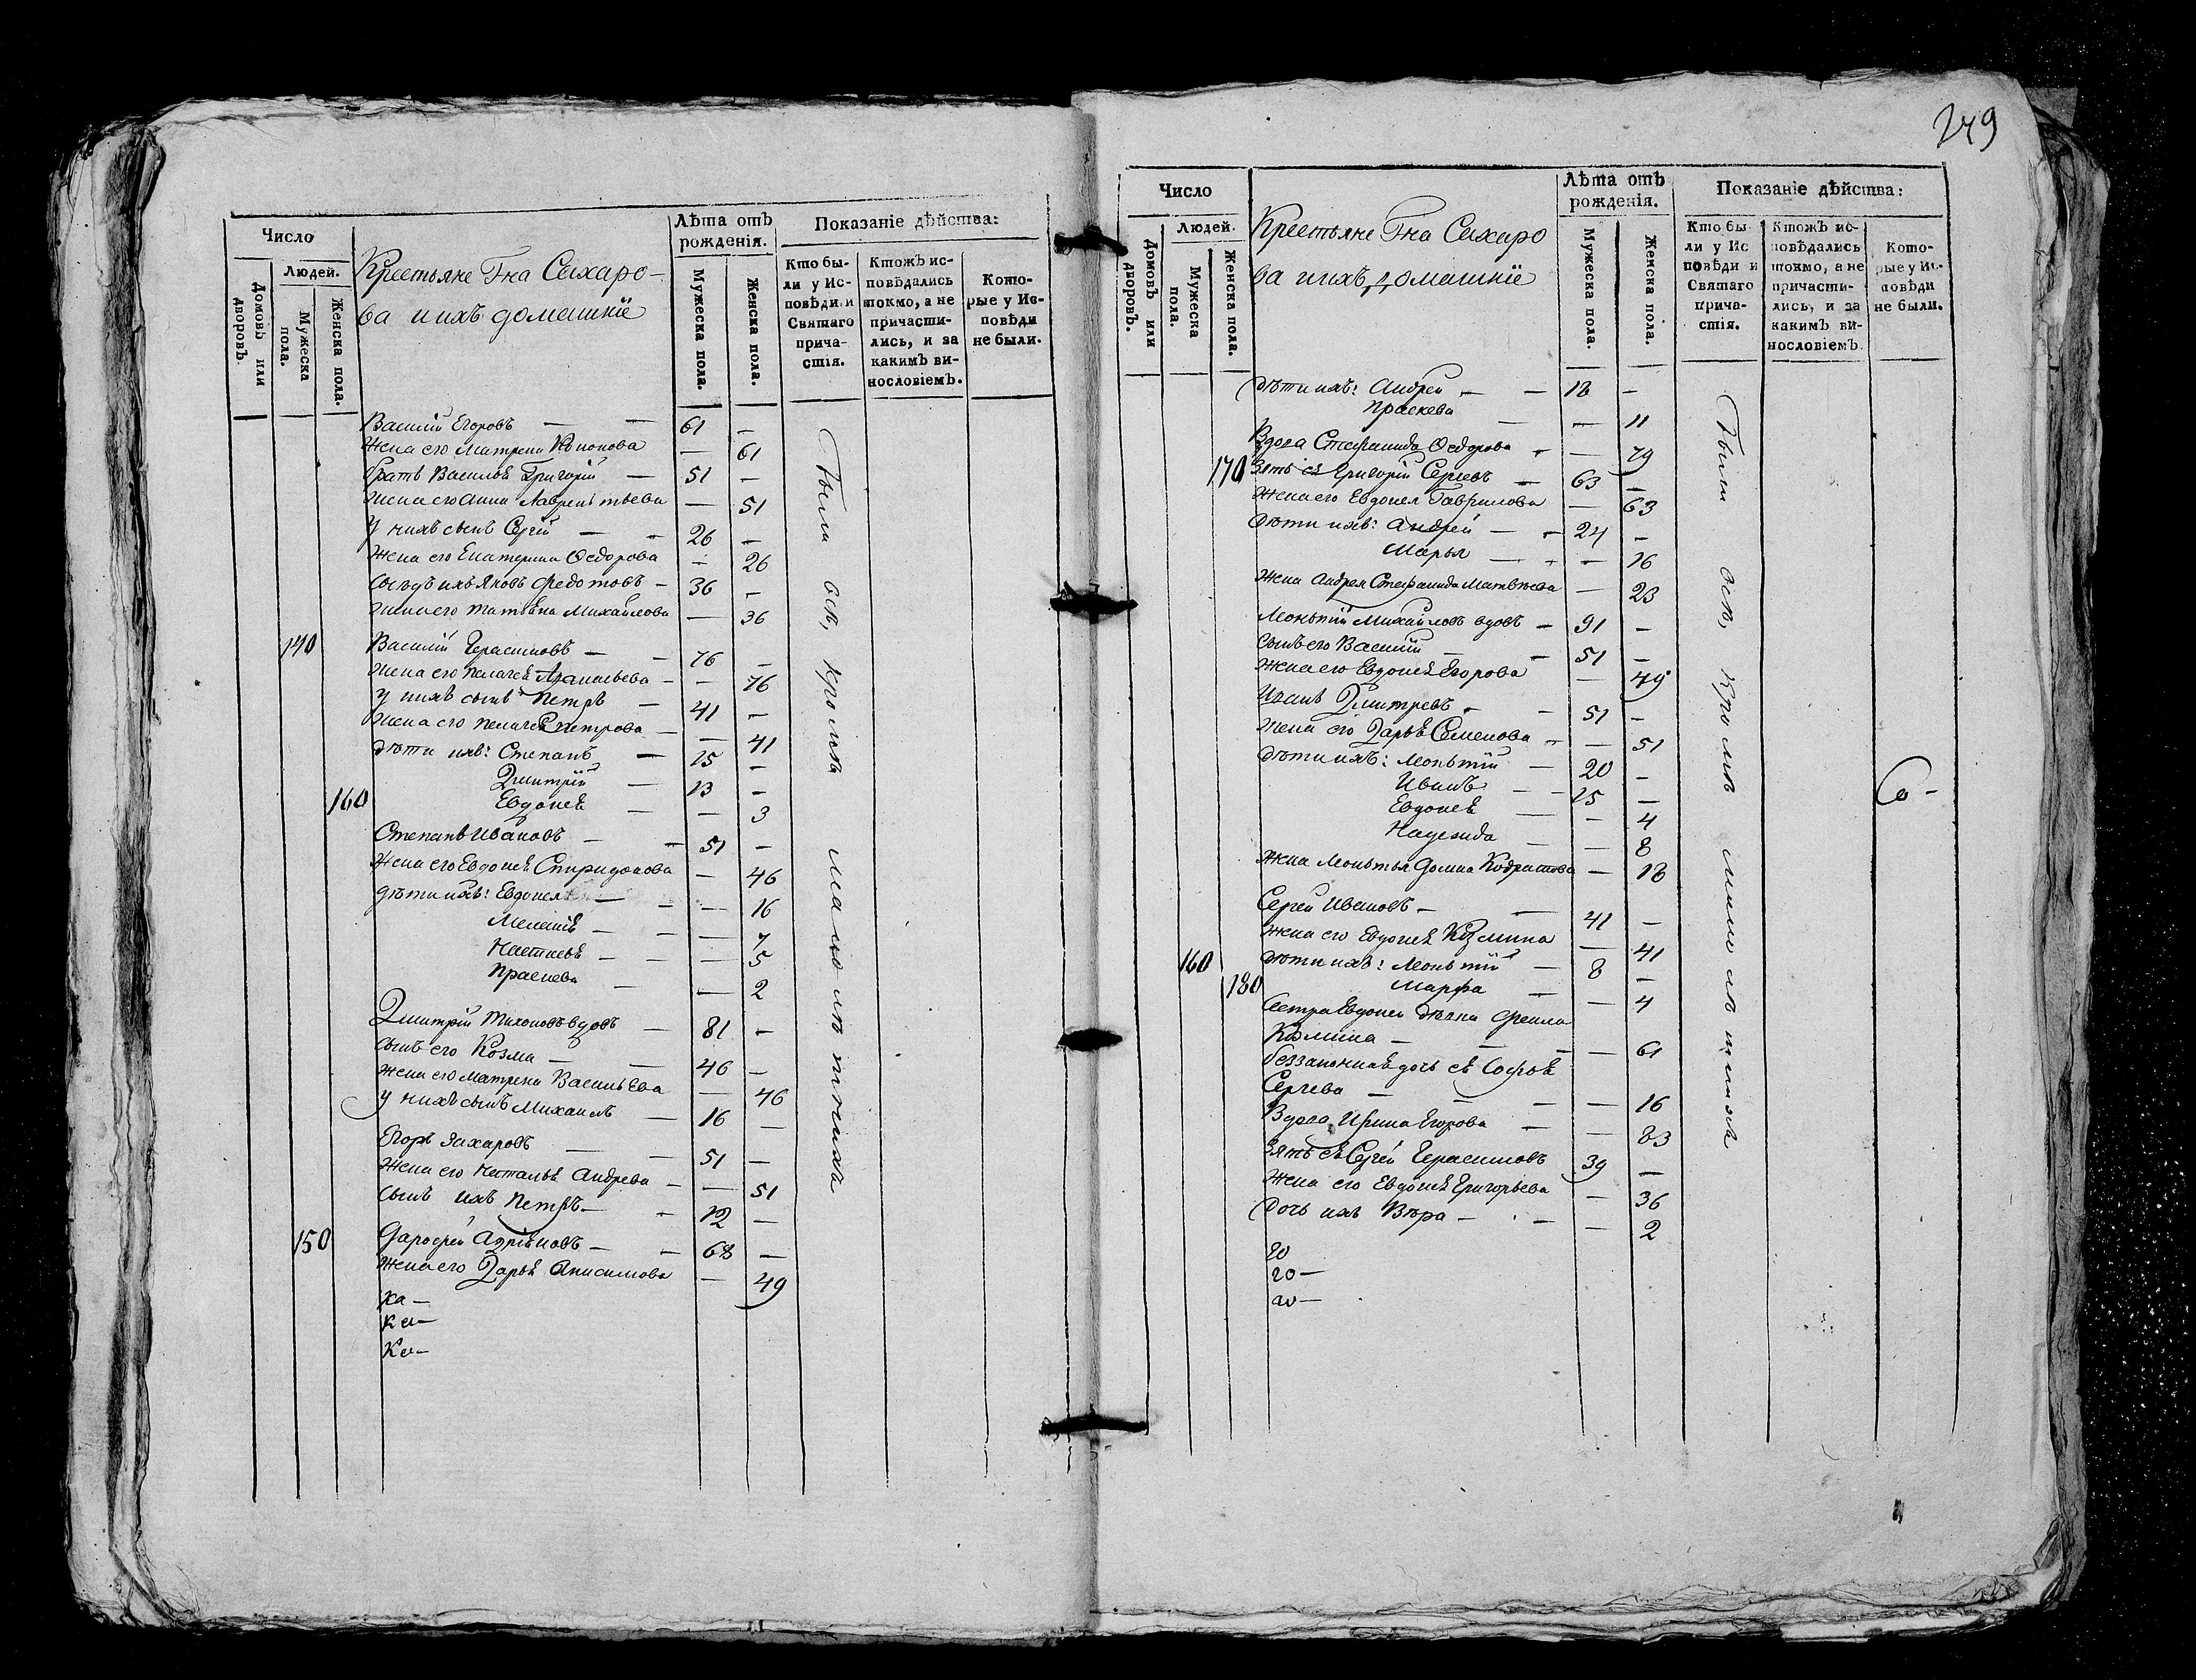 Число
Людей.
Домовъ или дворовъ.
Мужеска пола.
Женска пола.
Крестьяне Гна Сахаро-
ва и ихъ домашніе
Лѣта отъ рожденія.
Мужеска пола.
Женска пола.
Показаніе дѣйства:
Кто бы-
ли у Ис-
повѣди и
Святаго
прича-
стія.
Ктожъ ис-
повѣдались
токмо, а не
причасти-
лись, и за
какимъ ви-
нословіемъ.
Кото-
рые у Ис-
повѣди
не были.
Василій Егоровъ — — 61 —
Жена его Матрена Кононова — 61
Братъ Васильѣ Григорій — 51 —
Жена его Анна Лаврентьева — 51
У нихъ сынъ Сергій — — 26 —
Жена его Екатерина Ѳедорова — 26
Сосѣдъ ихъ Яковъ Федотовъ — 36 —
Жена его Татьяна Михайлова — 36
140 Василій Герасимовъ — — 76 —
Жена его Пелагеѣ Афанасьева — — 76
У нихъ сынъ Петръ — 41 —
Жена его Пелагеѣ Петрова — — 41
Дѣти ихъ: Степанъ — 15 —
Дмитрій — 13 —
160 Евдокеѣ — — 3
Степанъ Ивановъ — — 51 —
Жена его Евдокеѣ Спиридонова — 46
Дѣти ихъ: Евдокея — — — 16
Меланіѣ — — — 7
Настасьѣ — — — 5
Праскева — — 2
Дмитрій Тихоновъ вдовъ — 81 —
Сынъ его Козма — — 46 —
Жена его Матрена Васильева — 46
У нихъ сынъ Михаилъ — 16 —
Егоръ Захаровъ — — 51 —
Жена его Натальѣ Андрева — — 51
Сынъ ихъ Петръ — — 12 —
150 Дарофей — — 68 —
Жена его Дарьѣ Анисимова — 49
Ка —
Ка —
Ка —
Были всѣ, кромѣ малолѣтнихъ
249
Число
Людей.
Домовъ или дворовъ.
Мужеска пола.
Женска пола.
Крестьяне Гна Сахаро
ва и ихъ домашніе
Лѣта отъ рожденія.
Мужеска пола.
Женска пола.
Показаніе дѣйства:
Кто бы-
ли у Ис
повѣди и
Святаго
прича-
стія.
Ктожъ ис-
повѣдались
токмо, а не
причасти-
лись, и за
какимъ ви-
нословіемъ.
Кото-
рые у Ис-
повѣди
не были.
Дѣти ихъ: Андрей — — 18 —
Праскева — — 11
Вдова Стефанида Ѳедорова — — 79
170 Зять еѣ Григорій Сергевъ — 63 —
Жена его Евдокея Гаврилова — 63
Дѣти ихъ: Андрей — — 24 —
Марья — — — 16
Жена Андрея Стефанида Матвѣева — 23
Монѣтій Михайловъ вдовъ — 91 —
Сынъ его Василій — — 51 —
Жена его Евдокеѣ Егорова — 49
Иванъ Дмитревъ — — 51 —
Жена его Дарьѣ Семенова — — 51
Дѣти ихъ: Монѣтій — 20 —
Иванъ — — 15 —
Евдокеѣ — — 4
Надежда — — 8
Жена Монѣтья Домна Кодратова — 18
Сергей Ивановъ — — 41 —
Жена его Евдокеѣ Козмина — 41
160 Дѣти ихъ: Монѣтій — 8 —
180 Марфа — — 4
Сестра Евдокеи дѣвка Фекла
Козмина — — — — 61
Беззаконнаѣ дочь еѣ Софьѣ
Сергева — — — — 16
Вдова Ирина Егорова — — 83
Зять еѣ Сергей Герасимовъ 39 —
Жена его Евдокеѣ Григорьева — 36
Дочь ихъ Вѣра — — — 2
Были всѣ, кромѣ